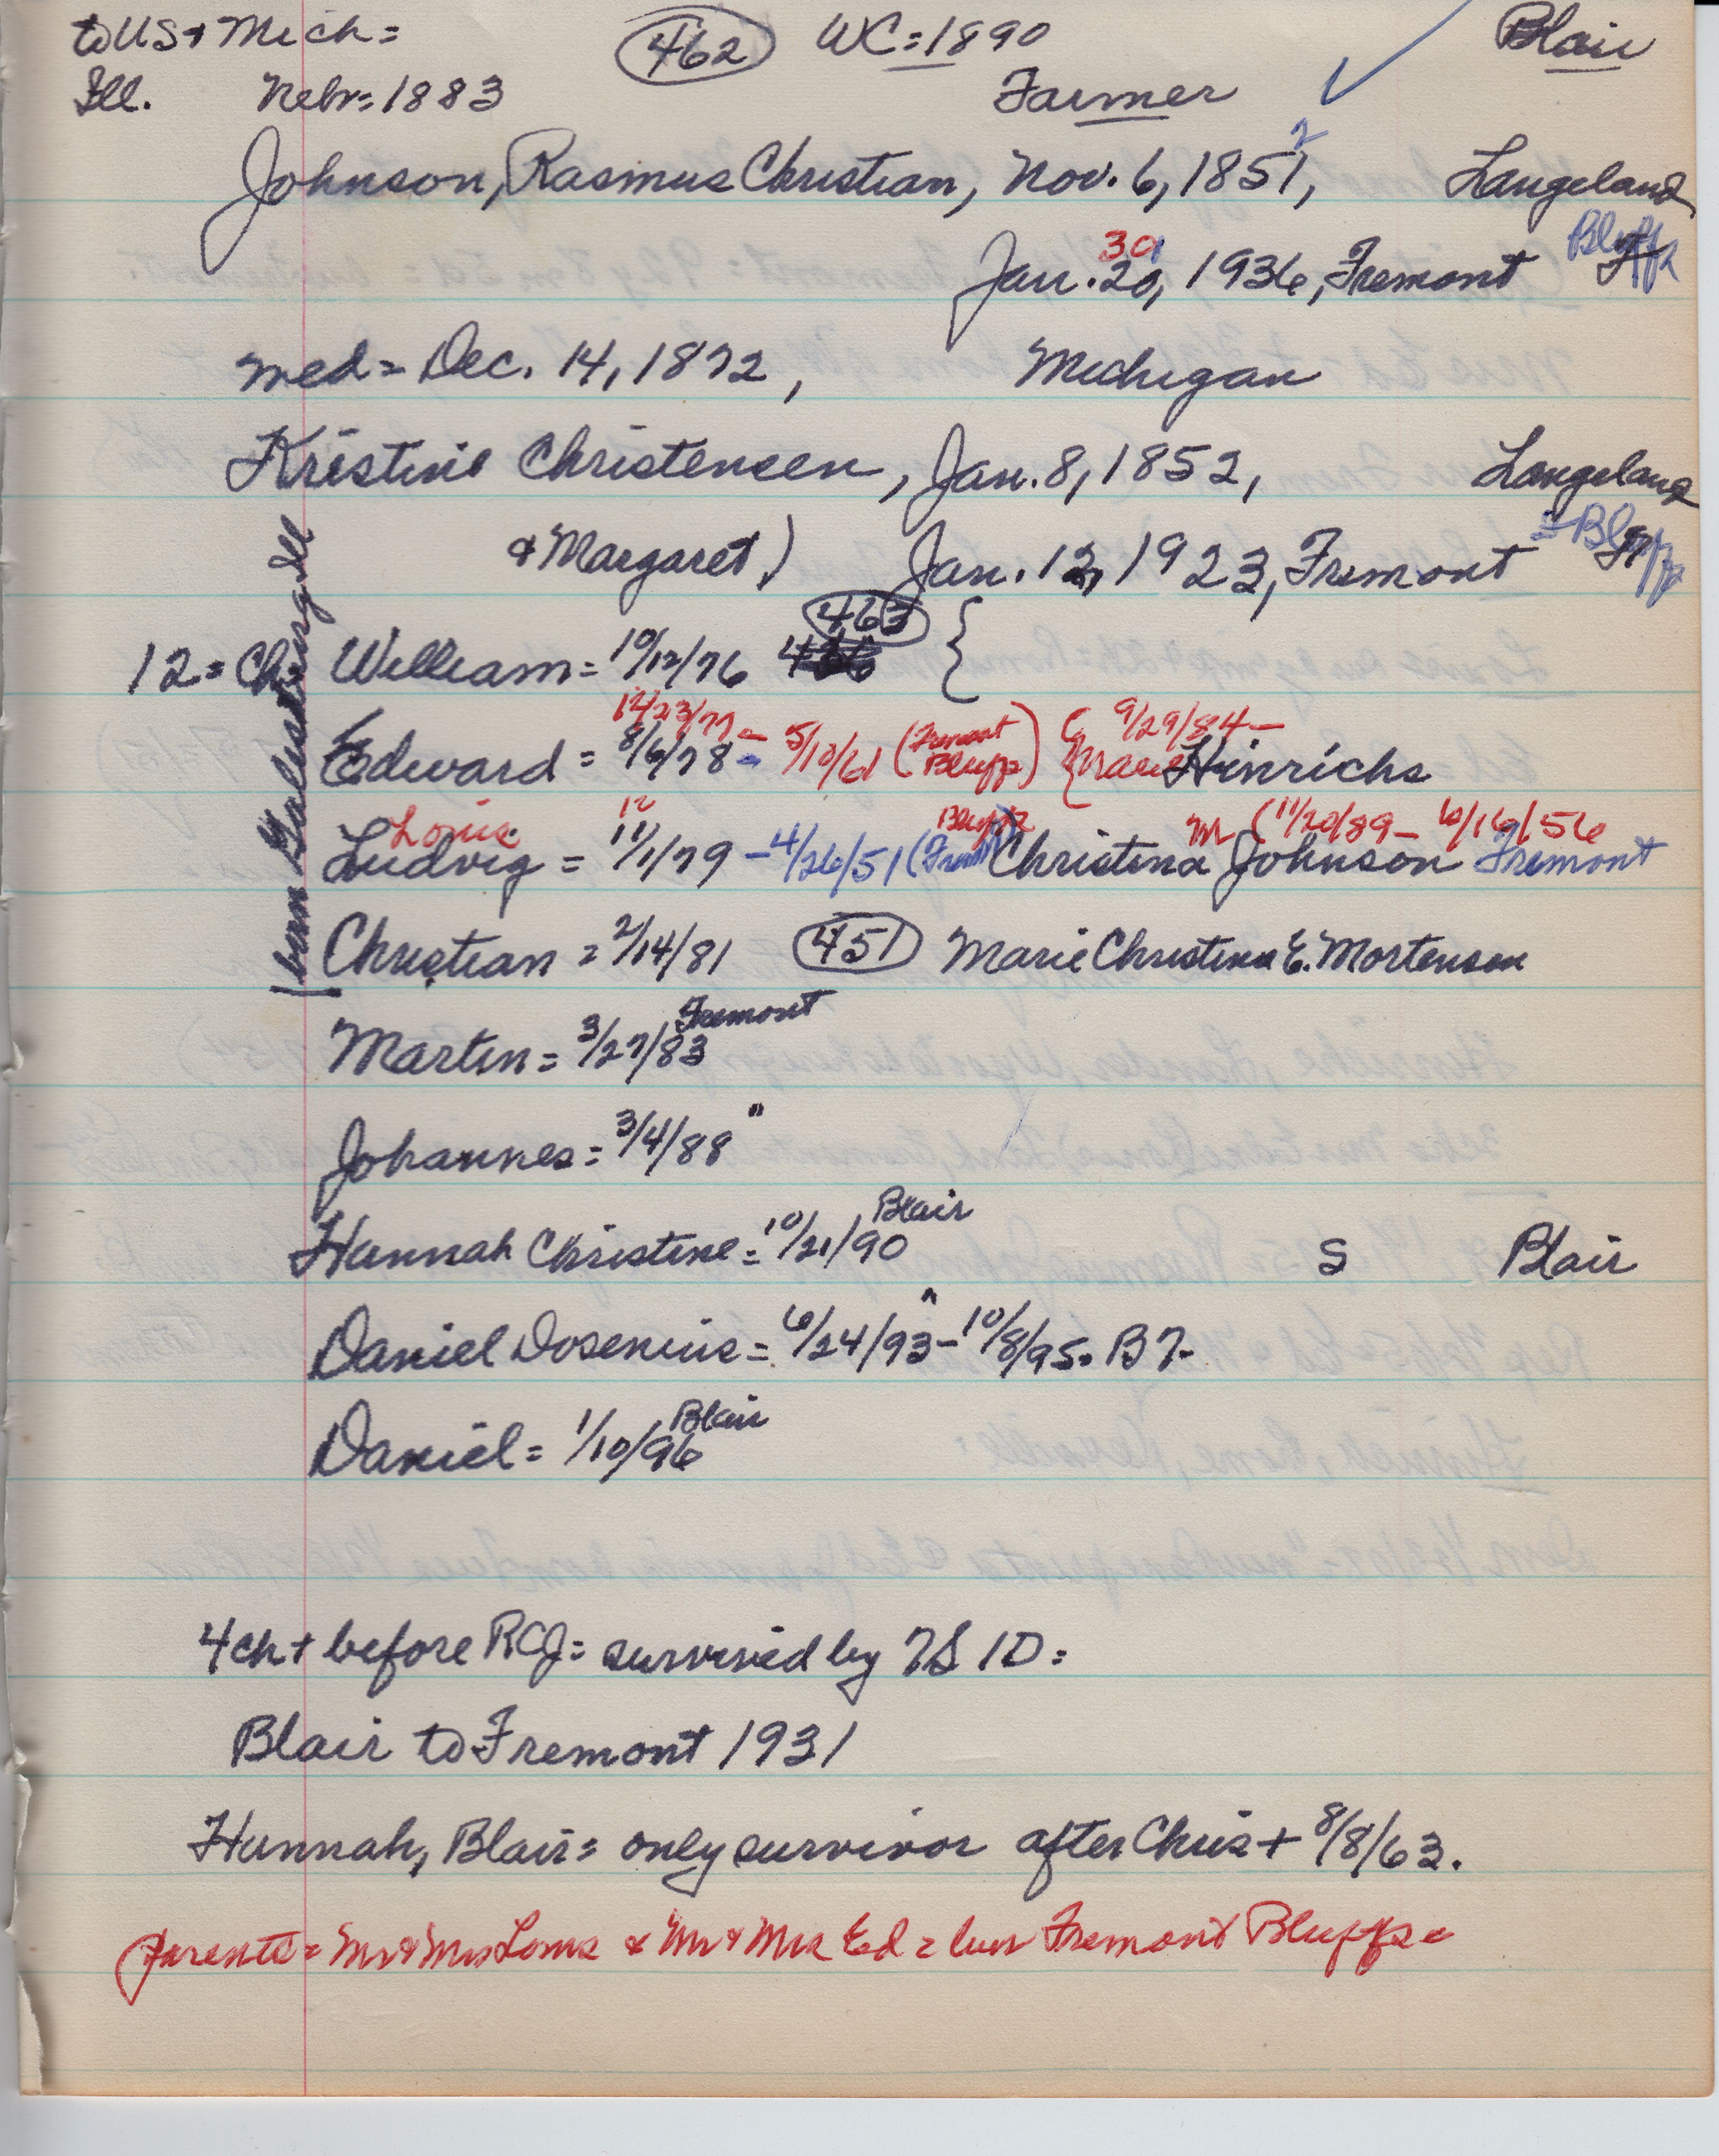 to US & Mich = 462 WC = 1890 Blair
Ill. Nebr = 1883 Farmer
Johnson, Rasmus Christian, Nov. 6, 1851, 2 Langeland
30
Jan. 20, 1936, Fremont Bluffs
med = Dec. 14, 1872, Michigan
Kristine Christensen, Jan. 8, 1852, Langeland
& Margaret) Jan. 12, 1923, Fremont = Bluffs
born Galesburg Ill
463
12 = Ch = William = 10/12/76 {
12/23/77 - 9/29/84 -
Edward = 8/6/78 - 5/10/61 (Fremont Bluffs) { Marie Hinrichs
Louis 12 Bluffs M (11/20/89 - 6/16/56
Ludvig = 11/1/79 - 4/26/51 (Frem Christina Johnson Fremont
Christian = 2/14/81 451 Marie Christina E. Mortensen
Fremont
Martin = 3/27/83
Johannes = 3/4/88 "
Blair
Hannah Christine = 10/21/90 S Blair
Daniel Dosenius = 6/24/93 " - 10/8/95. B7-
Blair
Daniel = 1/10/96
4 ch + before RCJ = survived by 7S 1D =
Blair to Fremont 1931
Hannah, Blair = only survivor after Chris + 8/8/63.
parents = Mr & Mrs Louis & Mr & Mrs Ed = bur Fremont Bluffs =